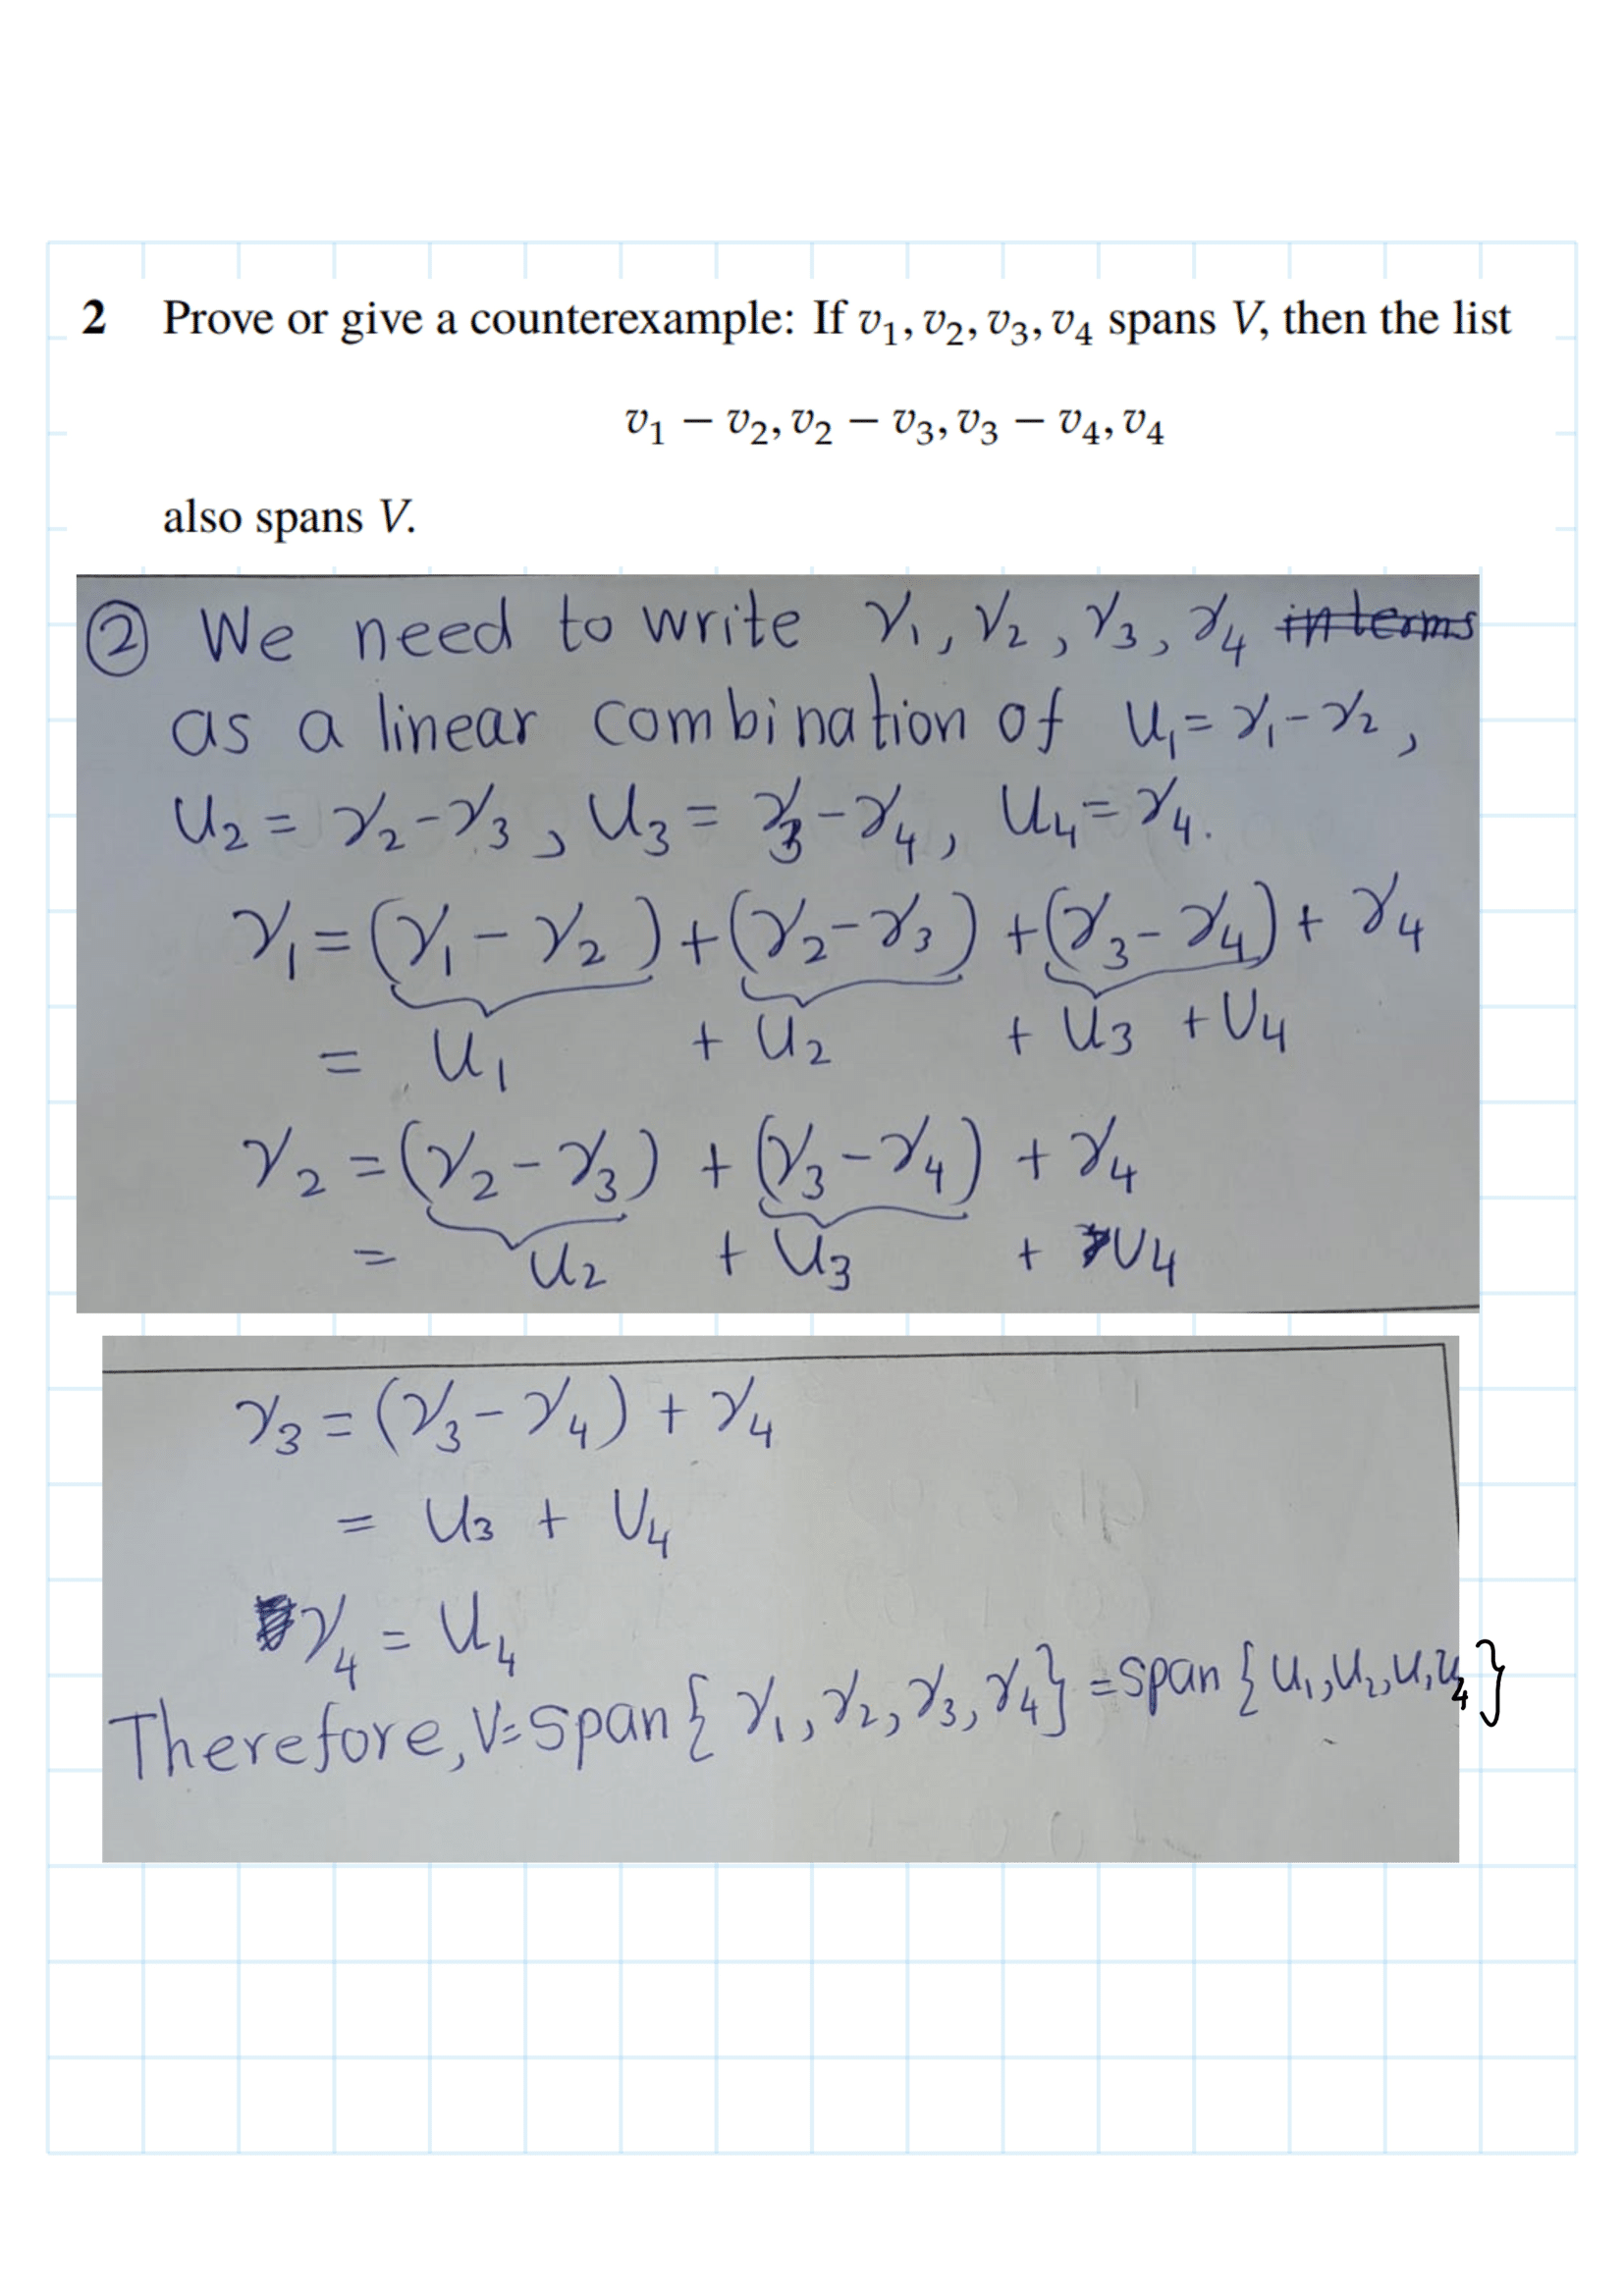 2 Prove or give a counterexample: If v₁, v₂, v₃, v₄ spans V, then the list
v₁ − v₂, v₂ − v₃, v₃ − v₄, v₄
also spans V.
② We need to write v₁, v₂, v₃, v₄ in terms
as a linear combination of u₁ = v₁ - v₂,
u₂ = v₂ - v₃, u₃ = v₃ - v₄, u₄ = v₄.
v₁ = (v₁ - v₂) + (v₂ - v₃) + (v₃ - v₄) + v₄
= u₁ + u₂ + u₃ + u₄
v₂ = (v₂ - v₃) + (v₃ - v₄) + v₄
= u₂ + u₃ + u₄
v₃ = (v₃ - v₄) + v₄
= u₃ + u₄
v₄ = u₄
Therefore, V = span{v₁, v₂, v₃, v₄} = span{u₁, u₂, u, u₄}